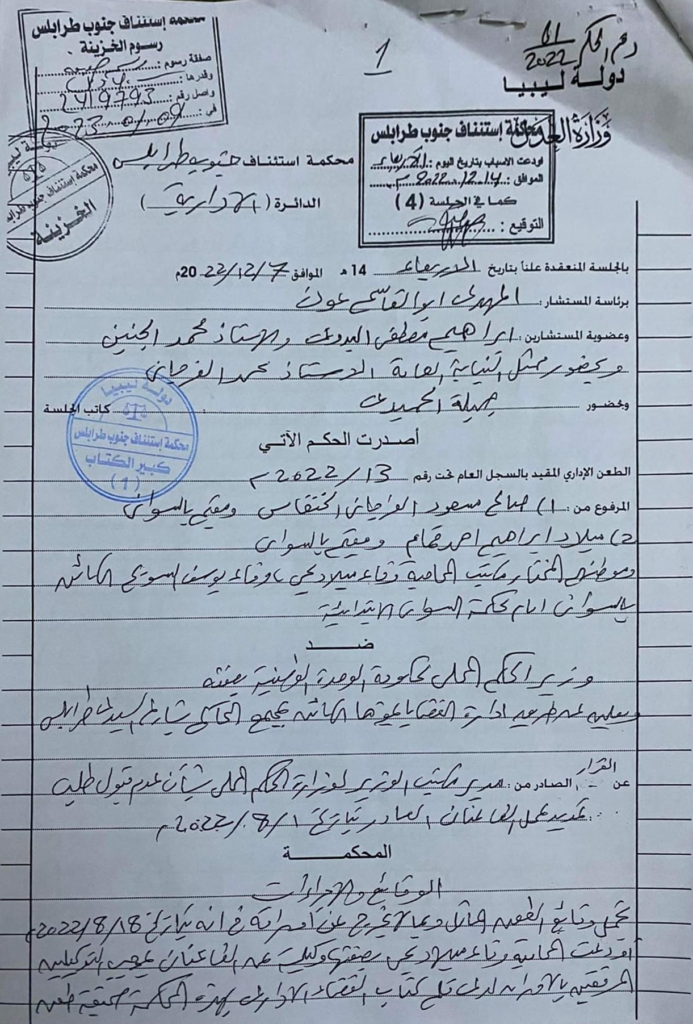 رقم الحكم 61/2022
دولة ليبيا
وزارة العدل
1
محكمة إستئناف جنوب طرابلس
رسوم الخزينة
صفة رسوم :
وقدرها :
واصل رقم : 2419793
في :
محكمة إستئناف جنوب طرابلس
أودعت الاسباب بتاريخ اليوم : الاربعاء
الموافق : 2022.12.14
كما في الجلسة (4)
التوقيع :
دولة ليبيا
محكمة إستئناف جنوب طرابلس
الخزينة
محكمة استئناف جنوب طرابلس
الدائرة ( الادارية )
بالجلسة المنعقدة علناً بتاريخ الاربعاء 14 هـ الموافق 2022/12/7م
برئاسة المستشار : المهدي ابوالقاسم عون
وعضوية المستشارين : ابراهيم مصطفى البدوي والاستاذ محمد الجنين
وبحضور ممثل النيابة العامة الاستاذ محمد الفرجاني
وبحضور جميلة الحميدي كاتب الجلسة
دولة ليبيا
محكمة إستئناف جنوب طرابلس
كبير الكتاب
(1)
أصدرت الحكم الآتي
الطعن الإداري المقيد بالسجل العام تحت رقم 2022/13م
المرفوع من : 1) صالح مسعود الفرجاني ومقيم بالسواني
2) ميلاد ابراهيم احمد ومقيم بالسواني
وموطنهم المختار مكتب المحامية وفاء ميلاد يحي ووفاء يوسف السويح الكائن
بالسواني امام محكمة السواني الابتدائية
ضد
وزير الحكم المحلي بحكومة الوحدة الوطنية بصفته
ويعلن عن طريق ادارة القضايا بمقرها الكائن بمجمع المحاكم شارع السيدي طرابلس
عن القرار الصادر من : مدير مكتب الوزير لوزارة الحكم المحلي بشأن عدم قبول طلب
تمديد عمل الطاعنان الصادر بتاريخ 2022/8/1م
المحكمة
الوقائع والاجراءات
تجمل وقائع الطعن الماثل وبما لا يخرج عن اوراقه في انه بتاريخ 2022/8/18م
أودعت المحامية وفاء ميلاد يحي بصفتها وكيلة عن الطاعنان بموجب التوكيلين
المرفقين بالاوراق لدى قلم كتاب القضاء الاداري بهذه المحكمة صحيفة طعن